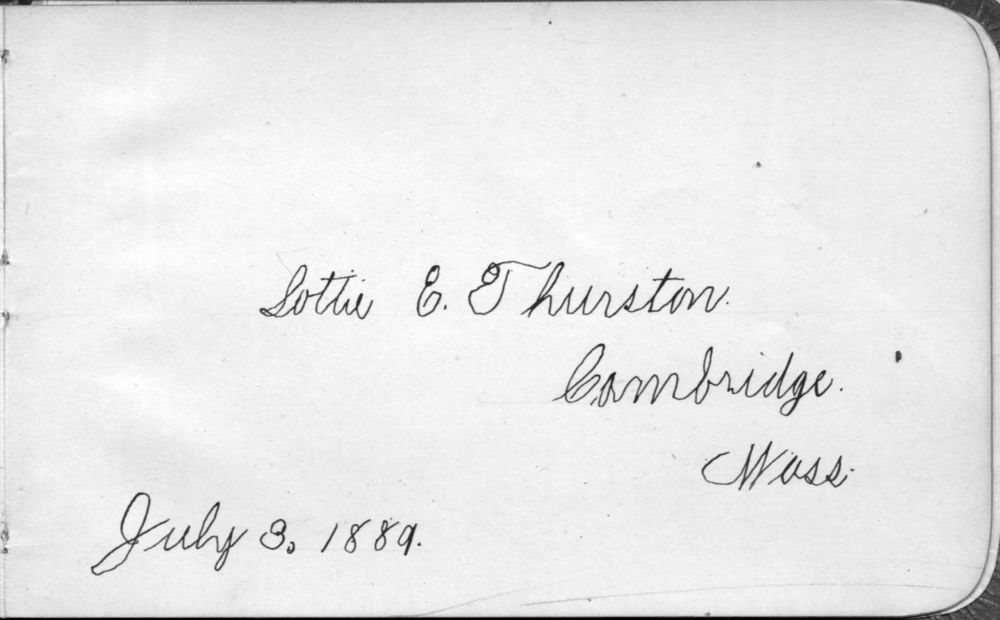 Lottie E. Thurston.
Cambridge.
Mass.
July 3, 1889.